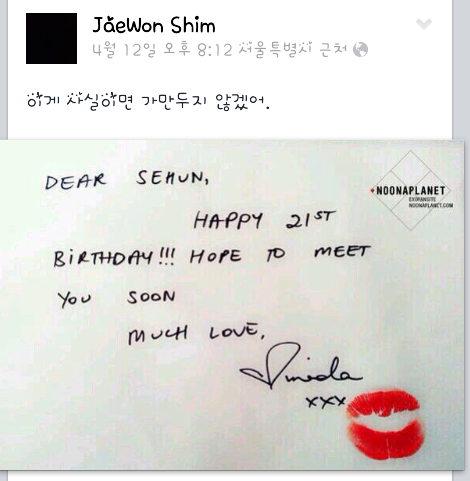 JaeWon Shim
4월 12일 오후 8:12 서울특별시 근처
이게 사실이면 가만두지 않겠어.
DEAR SEHUN,
NOONAPLANET
EXOFANSITE
NOONAPLANET.COM
HAPPY 21ST
BIRTHDAY!!! HOPE TO MEET
YOU SOON
MUCH LOVE,
xxx